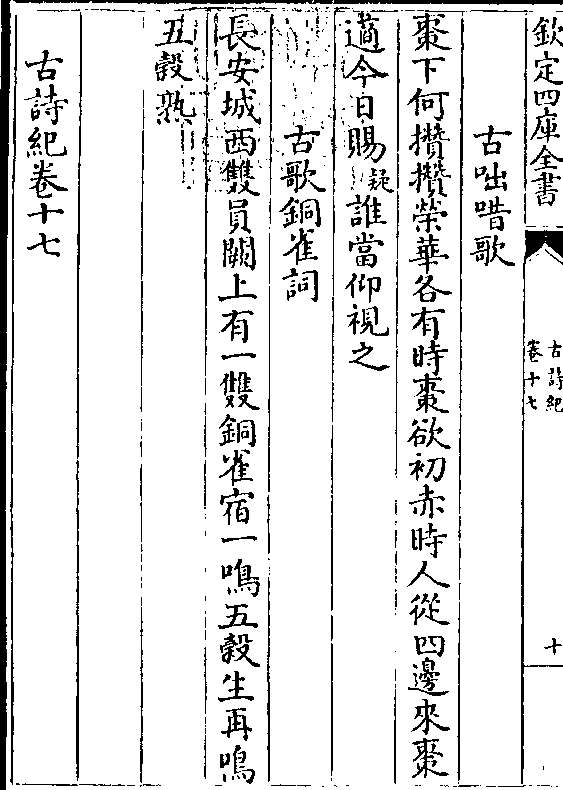 欽定四庫全書
古詩紀
卷十七
十
古咄唶歌
棗下何攢攢榮華各有時棗欲初赤時人從四邊來棗
適今日賜疑誰當仰視之
古歌銅雀詞
長安城西雙員闕上有一雙銅雀宿一鳴五榖生再鳴
五榖熟
古詩紀卷十七